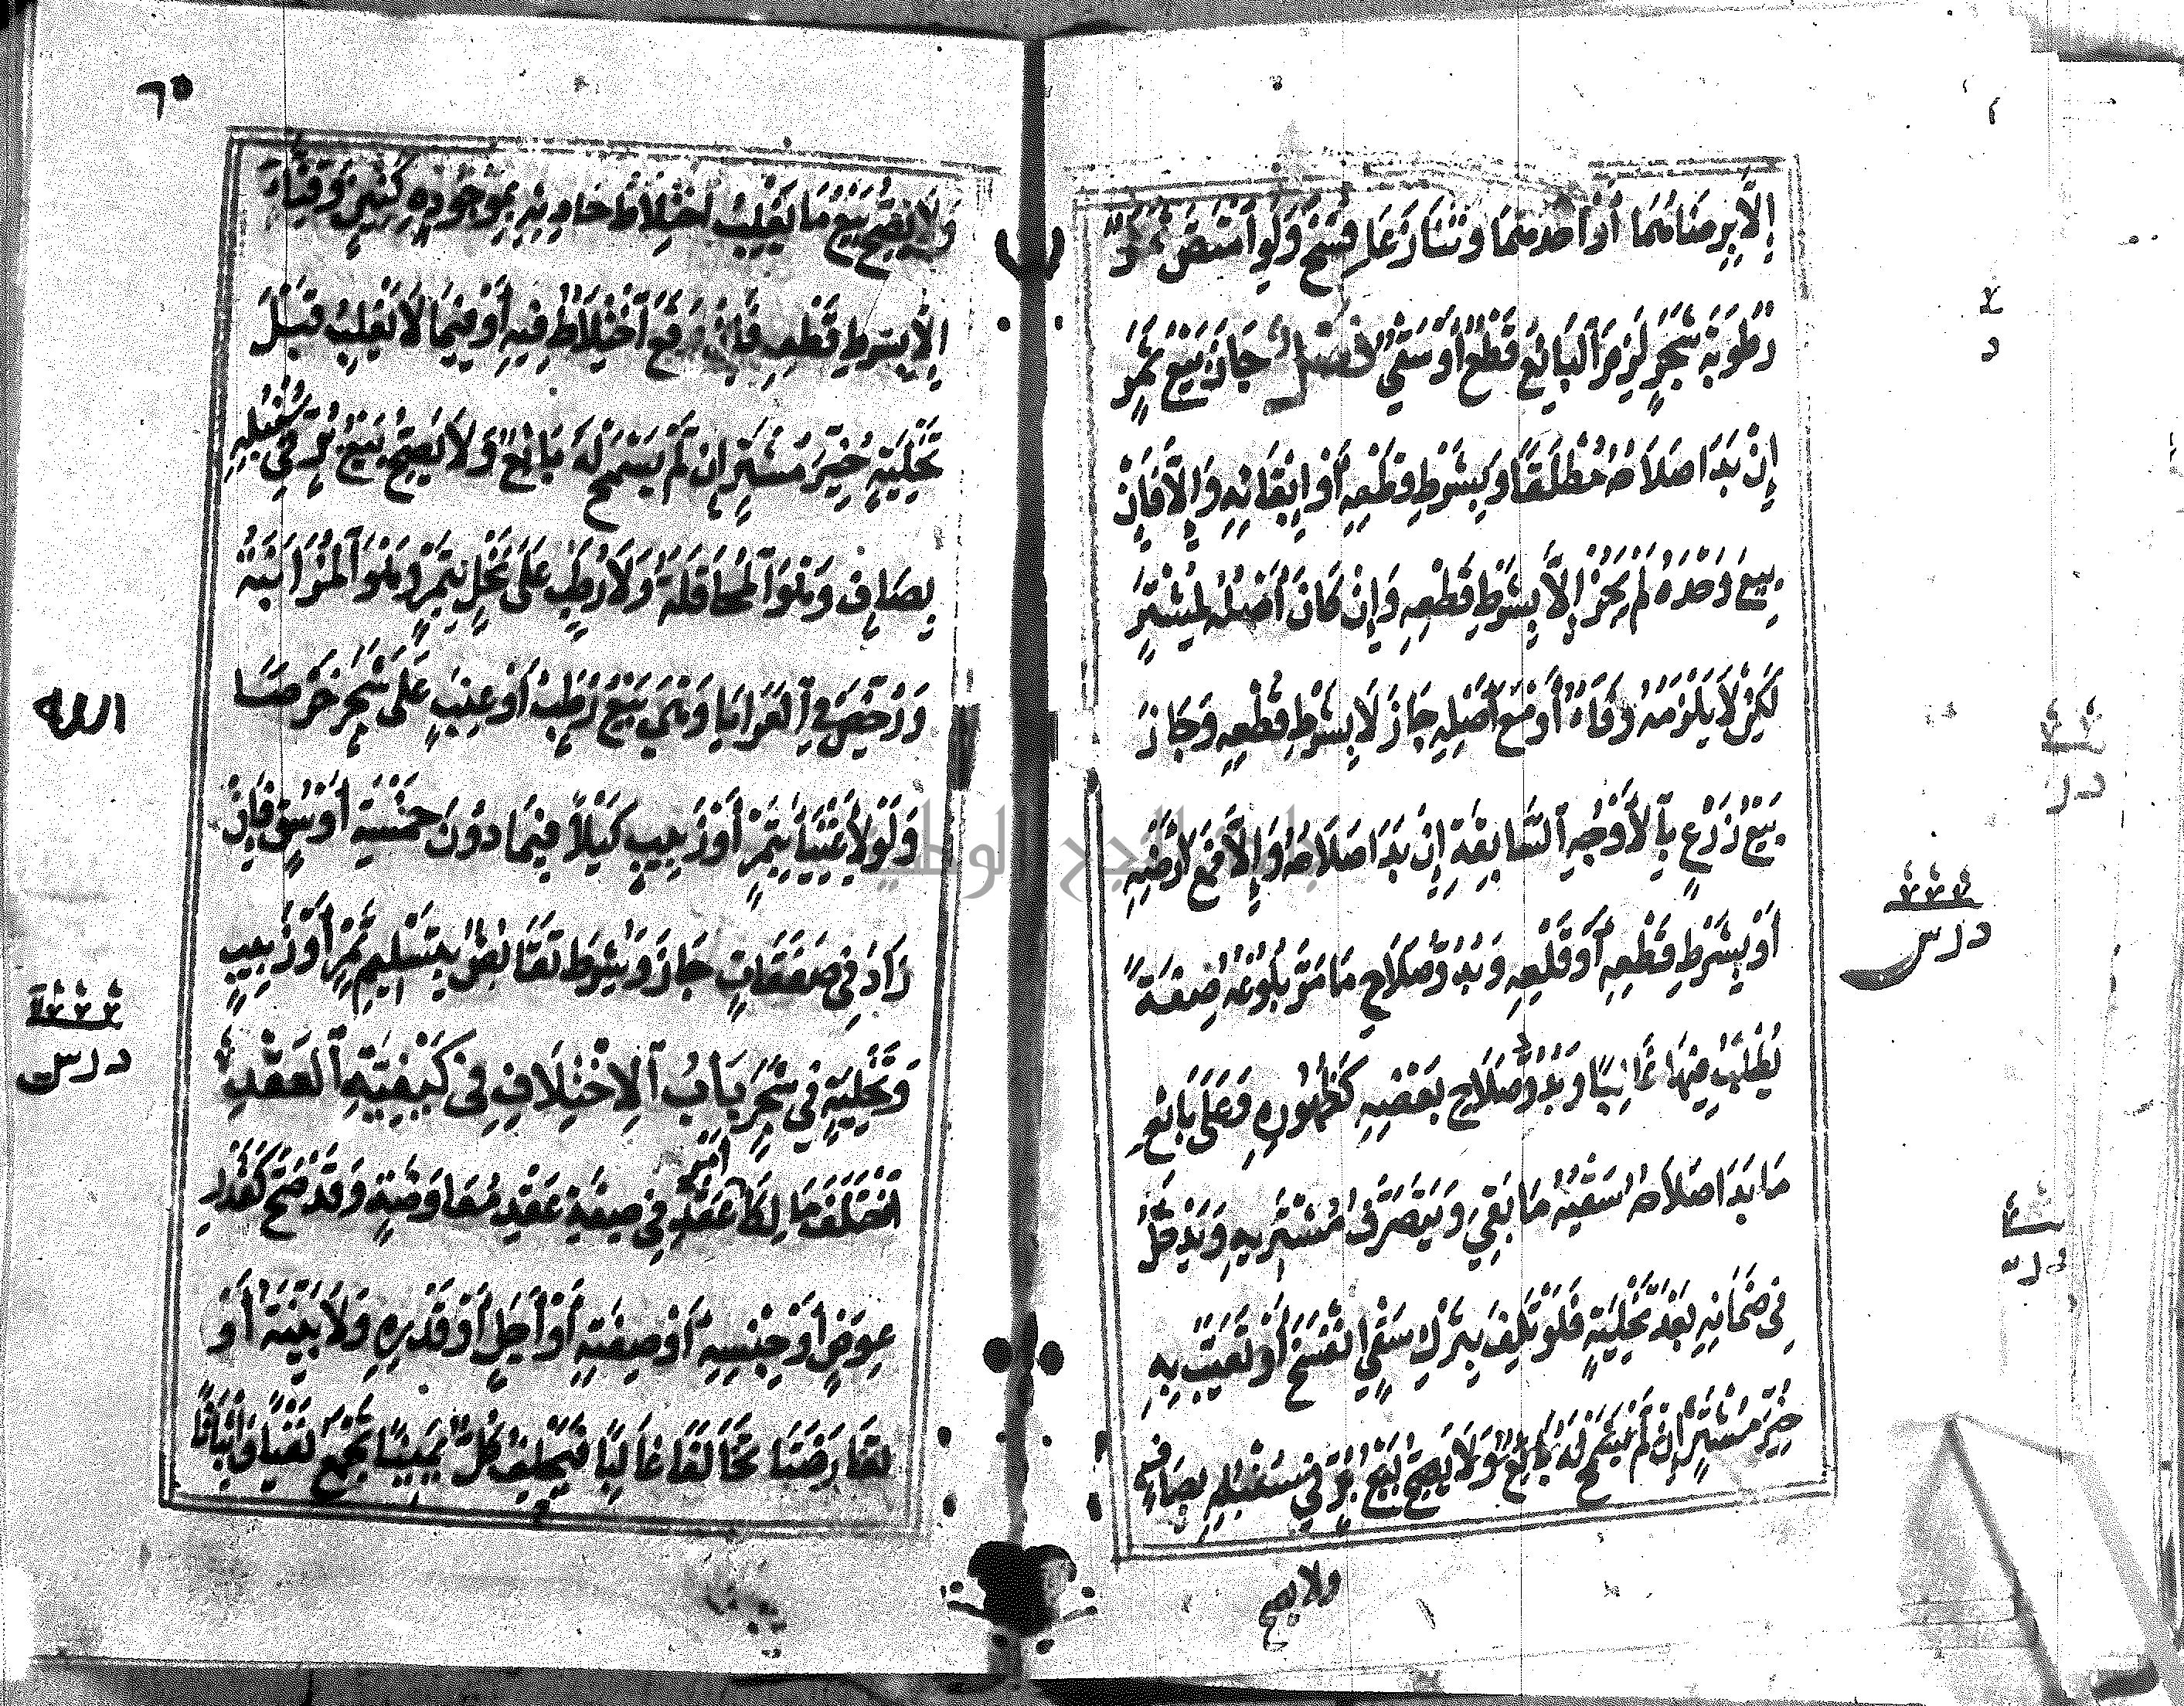 إِلَّا بِرِضَاهُمَا أَوْ أَحَدِهِمَا وَتَنَازَعَا فُسِخَ وَلَوِ امْتَصَّ ثَمَرٌ
رُطُوبَةَ شَجَرٍ لَزِمَ اَلْبَائِعَ قَطْعٌ أَوْ سَقْيٌ فصل جَازَ بَيْعُ ثَمَرٍ
إِنْ بَدَا صَلَاحُهُ مُطْلَقًا وَبِشَرْطِ قَطْعِهِ أَوْ إِبْقَائِهِ وَإِلَّا فَإِنْ
بِيعَ وَحْدَهُ لَمْ يَجُزْ إِلَّا بِشَرْطِ قَطْعِهِ وَإِنْ كَانَ أَصْلُهُ لِمُشْتَرٍ
لَكِنْ لَا يَلْزَمُهُ وَفَاءٌ أَوْ مَعَ أَصْلِهِ جَازَ لَا بِشَرْطِ قَطْعِهِ وَجَازَ
بَيْعُ زَرْعٍ بِاَلْأَوْجُهِ اَلسَّابِقَةِ إِنْ بَدَا صَلَاحُهُ وَإِلَّا فَمَعَ أَرْضِهِ
أَوْ بِشَرْطِ قَطْعِهِ أَوْ قَلْعِهِ وَبُدُوُّ صَلَاحِ مَا مَرَّ بُلُوغُهُ صِفَةً
يُطْلَبُ فِيهَا غَالِبًا وَبُدُوُّ صَلَاحِ بَعْضِهِ كَظُهُورِهِ وَعَلَى بَائِعِ
مَا بَدَا صَلَاحُهُ سَقْيُهُ مَا بَقِيَ وَيَتَصَرَّفُ مُشْتَرِيهِ وَيَدْخُلُ
فِي ضَمَانِهِ بَعْدَ تَخْلِيَةٍ فَلَوْ تَلِفَ بِتَرْكِ سَقْيٍ انْفَسَخَ أَوْ تَعَيَّبَ بِهِ
خُيِّرَ مُشْتَرٍ إِنْ لَمْ يَسْمَحْ لَهُ بَائِعٌ وَلَا يَصِحُّ بَيْعُ بُرٍّ فِي سُنْبُلِهِ بِصَافٍ
ولا يصح
درس
٦٥
وَلَا يَصِحُّ بَيْعُ مَا يَغْلِبُ اخْتِلَاطُ حَادِثِهِ بِمَوْجُودِهِ كَتِينٍ وَقِثَّاءٍ
إِلَّا بِشَرْطِ قَطْعِهِ فَإِنْ وَقَعَ اخْتِلَاطٌ فِيهِ أَوْ فِيمَا لَا يَغْلِبُ قَبْلَ
تَخْلِيَةٍ خُيِّرَ مُشْتَرٍ إِنْ لَمْ يَسْمَحْ لَهُ بَائِعٌ وَلَا يَصِحُّ بَيْعُ بُرٍّ فِي سُنْبُلِهِ
بِصَافٍ وَهُوَ اَلْمُحَاقَلَةُ وَلَا رُطَبٍ عَلَى نَخْلٍ بِتَمْرٍ وَهُوَ اَلْمُزَابَنَةُ
وَرَخَّصَ فِي اَلْعَرَايَا وَهِيَ بَيْعُ رُطَبٍ أَوْ عِنَبٍ عَلَى شَجَرٍ خَرْصًا
وَلَوْ لِأَغْنِيَاءَ بِتَمْرٍ أَوْ زَبِيبٍ كَيْلًا فِيمَا دُونَ خَمْسَةِ أَوْسُقٍ فَإِنْ
زَادَ فِي صَفَقَاتٍ جَازَ وَشُرِطَ تَقَابُضٌ بِتَسْلِيمِ تَمْرٍ أَوْ زَبِيبٍ
وَتَخْلِيَةٍ فِي شَجَرٍ بَابُ اَلِاخْتِلَافِ فِي كَيْفِيَّةِ اَلْعَقْدِ
اخْتَلَفَ مَالِكَا أَمْرِ عَقْدٍ فِي صِفَةِ عَقْدِ مُعَاوَضَةٍ وَقَدْ صَحَّ كَقَدْرِ
عِوَضٍ أَوْ جِنْسِهِ أَوْ صِفَتِهِ أَوْ أَجَلٍ أَوْ قَدْرِهِ وَلَا بَيِّنَةَ أَوْ
تَعَارَضَتَا تَحَالَفَا غَالِبًا فَيَحْلِفُ كُلٌّ يَمِينًا تَجْمَعُ نَفْيًا وَإِثْبَاتًا
درس
جامعة النجاح الوطنية